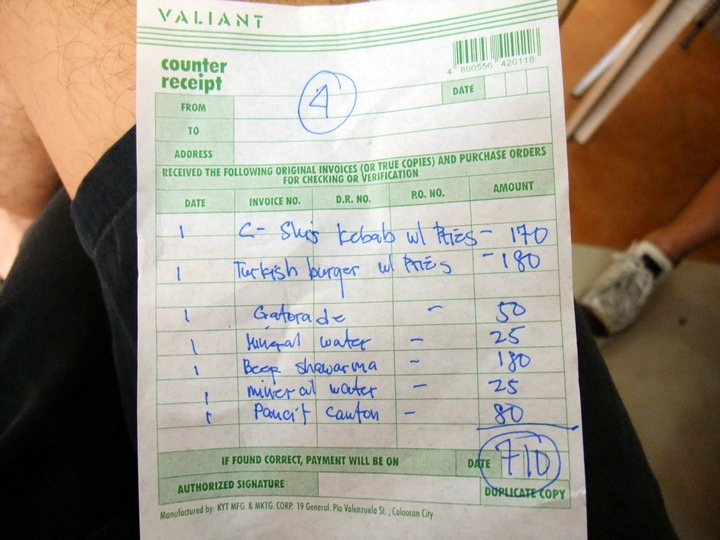 VALIANT
counter
receipt
4 800556 420118
4
DATE
FROM
TO
ADDRESS
RECEIVED THE FOLLOWING ORIGINAL INVOICES (OR TRUE COPIES) AND PURCHASE ORDERS
FOR CHECKING OR VERIFICATION
DATE INVOICE NO. D.R. NO. P.O. NO. AMOUNT
1 C- Shis kebab w/ Fries - 170
1 Turkish burger w/ Fries - 180
1 Gatorade - 50
1 Mineral water - 25
1 Beep shawarma - 180
1 mineral water - 25
1 Pancit canton - 80
710
IF FOUND CORRECT, PAYMENT WILL BE ON DATE
AUTHORIZED SIGNATURE DUPLICATE COPY
Manufactured by: KYT MFG. & MKTG. CORP. 19 General. Pio Valenzuela St. , Caloocan City